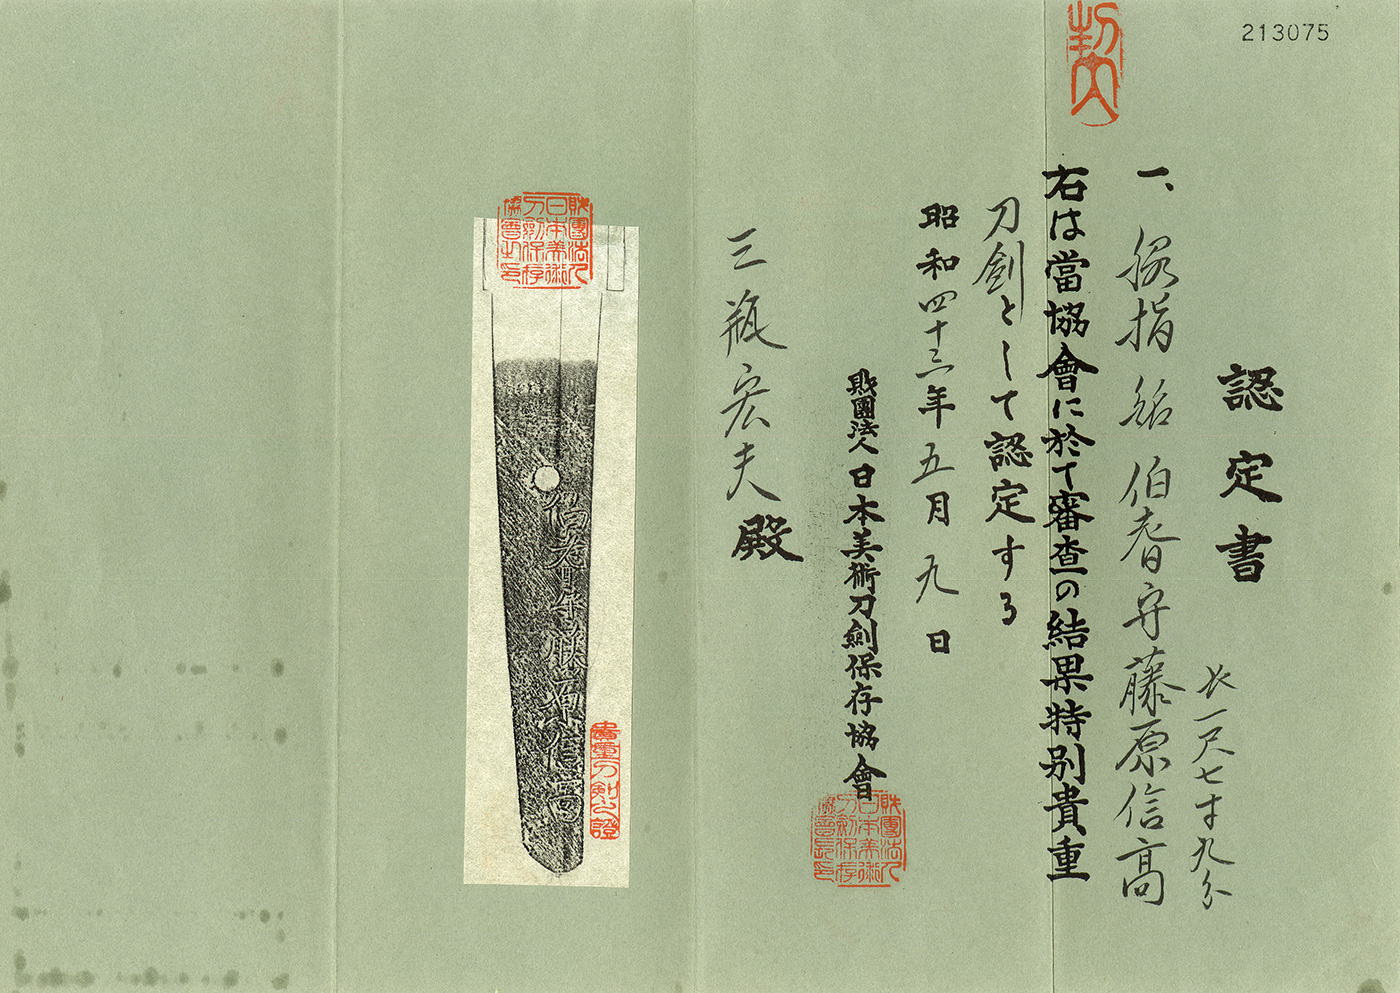 213075
認定書
一、脇指 銘 伯耆守藤原信高
長一尺七寸九分
右は當協會に於て審査の結果特別貴重
刀劍として認定する
昭和四十三年五月九日
財團法人日本美術刀劍保存協會
財團法人日本美術刀劍保存協會長印
三瓶宏夫殿
財團法人日本美術刀劍保存協會之印
伯耆守藤原信高
貴重刀劍之證